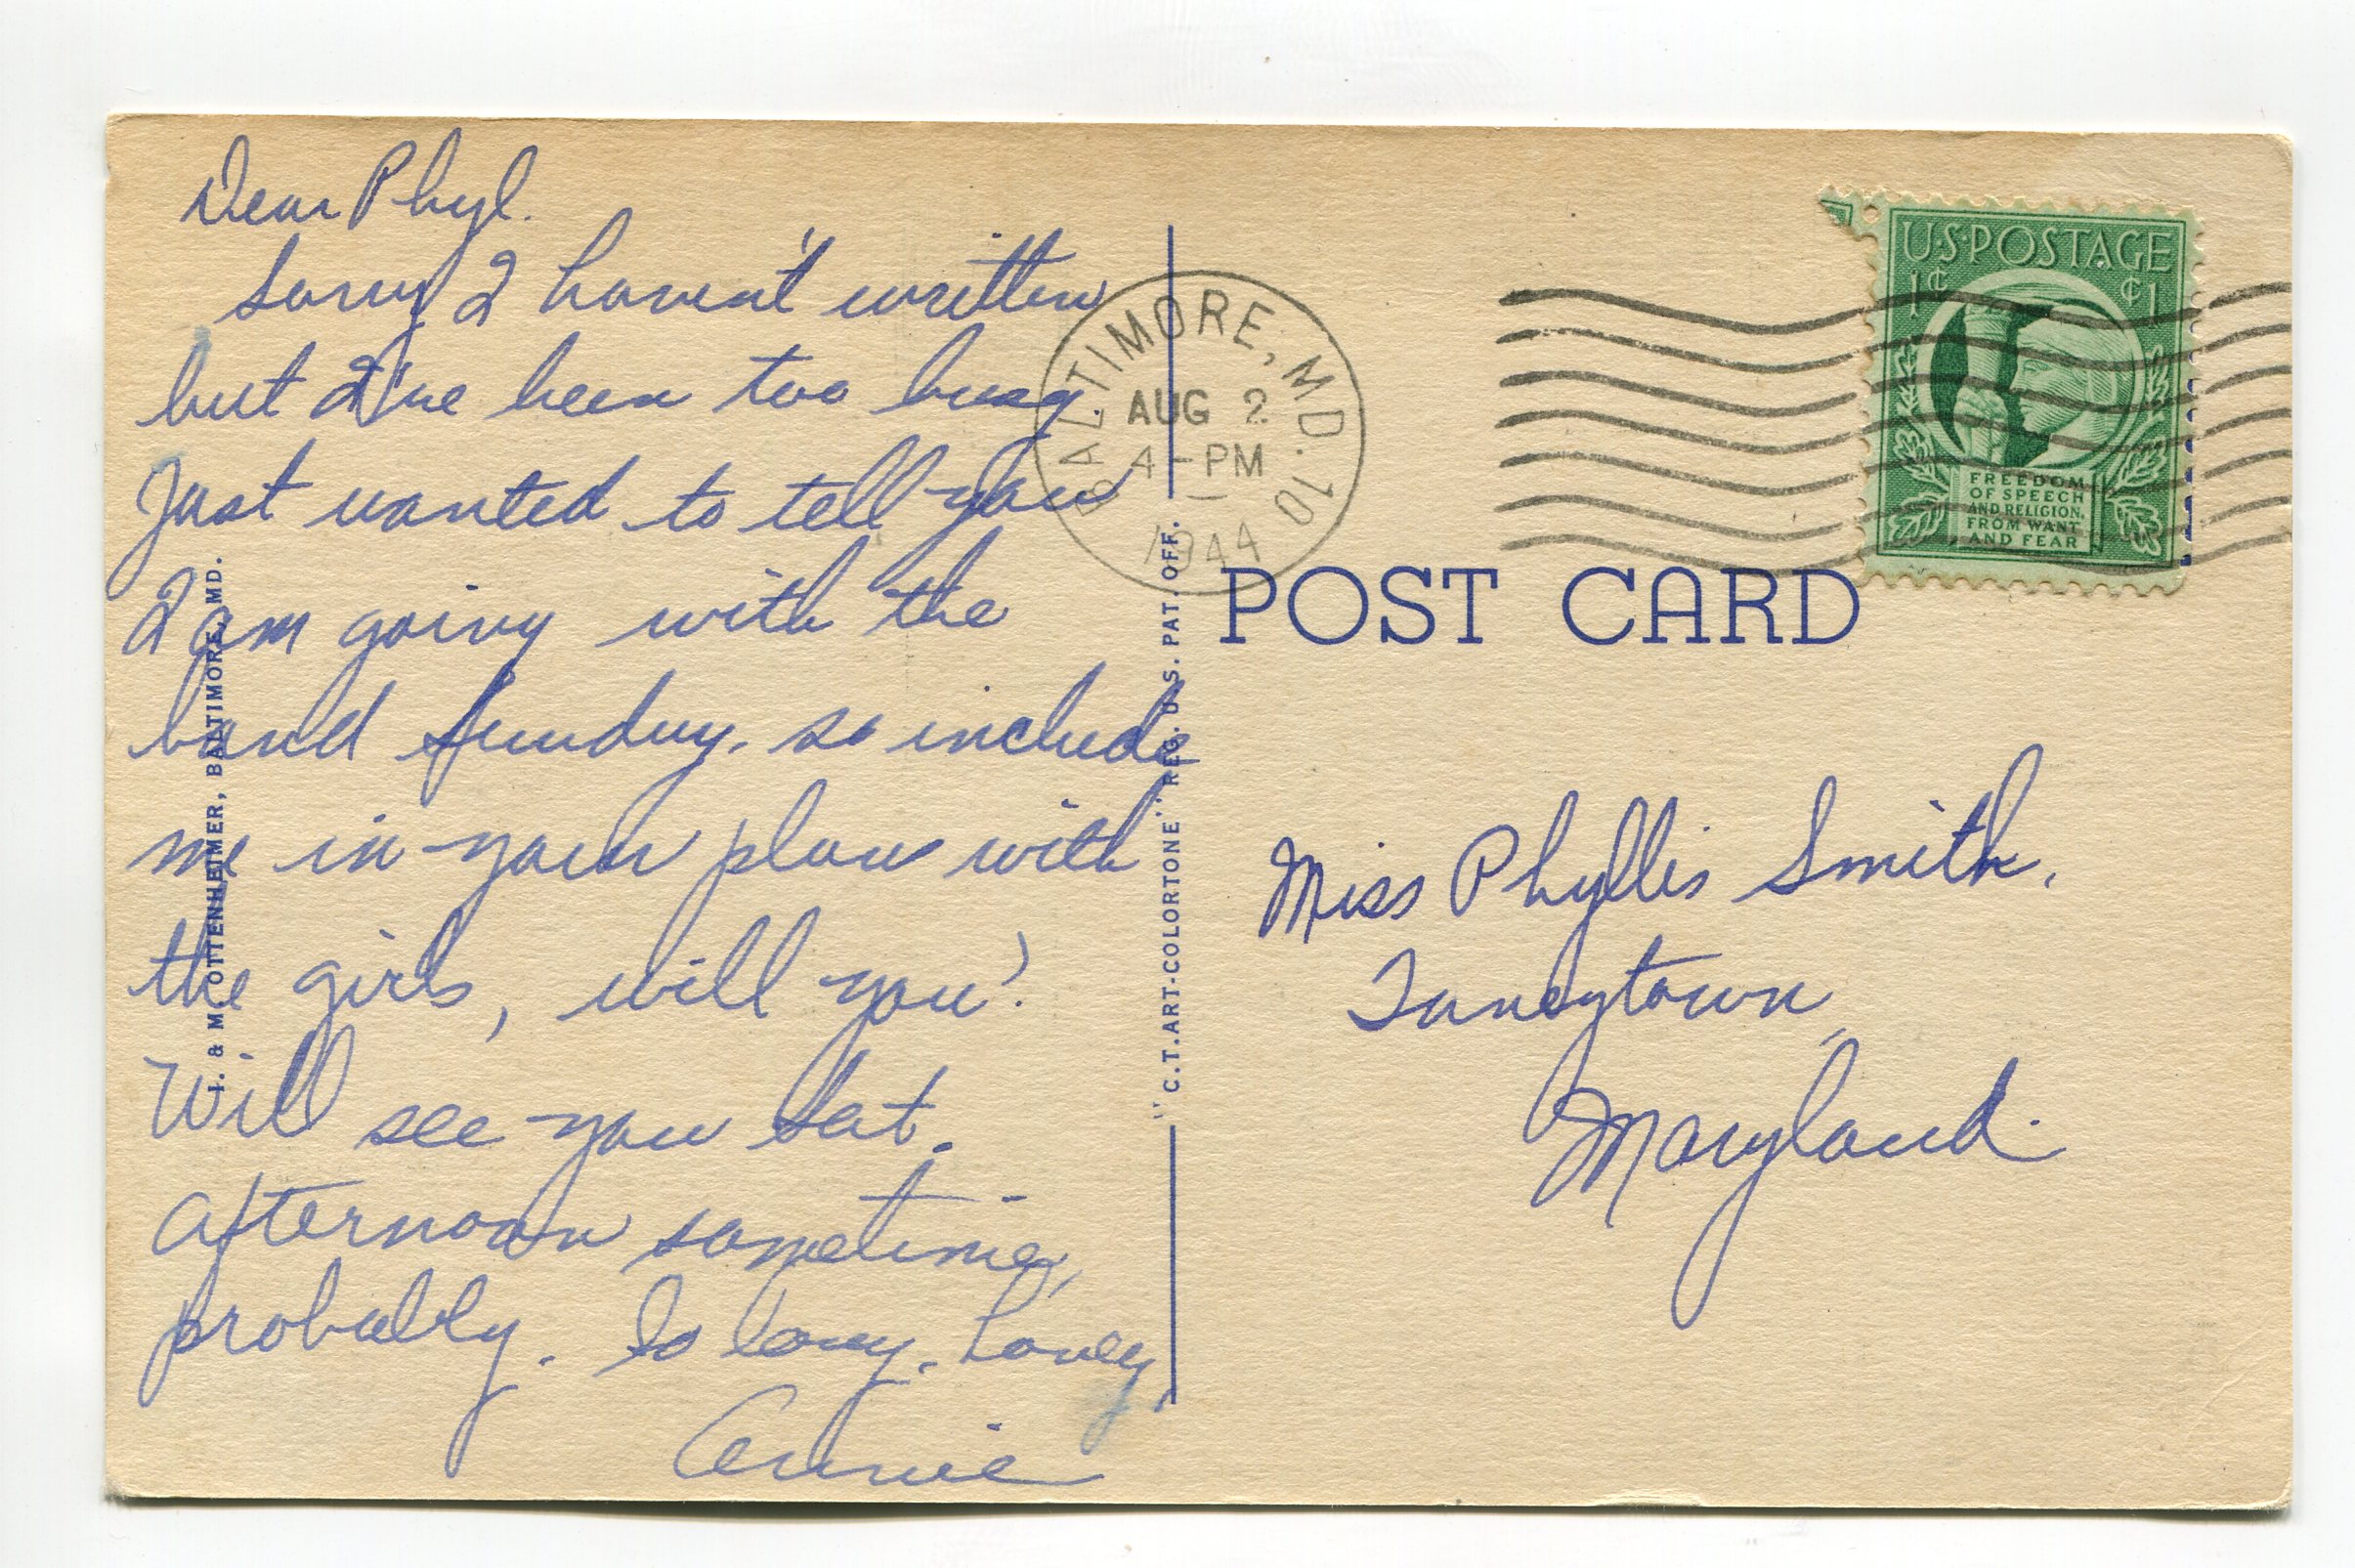 Dear Phyl.
Sorry I haven't written
but I've been too busy.
Just wanted to tell you
I am going with the
band Sunday. so include
me in your plans with
the girls, will you?
Will see you Sat.
afternoon sometime,
probably. So long, Honey,
Annie
I. & M. OTTENHEIMER, BALTIMORE, MD.
"C.T. ART-COLORTONE" REG. U.S. PAT. OFF.
BALTIMORE, MD. 10
AUG 2
4-PM
1944
U·S·POSTAGE
1¢ ¢1
FREEDOM
OF SPEECH
AND RELIGION,
FROM WANT
AND FEAR
POST CARD
Miss Phyllis Smith,
Taneytown,
Maryland.